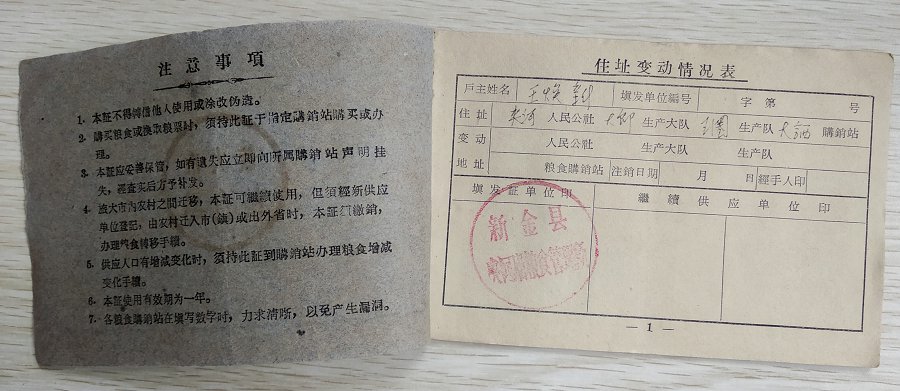 注意事項
1. 本証不得轉借他人使用或涂改伪造。
2. 購买粮食或換取粮票时，須持此証于指定購銷站購买或办
理。
3. 本証应妥善保管，如有遺失应立即向所属購銷站声明挂
失，經查实后方予补发。
4. 旅大市內农村之間迁移，本証可繼續使用，但須經新供应
单位登記，由农村迁入市（鎮）或出外省时，本証須繳銷，
办理粮食轉移手續。
5. 供应人口有增减变化时，須持此証到購銷站办理粮食增减
变化手續。
6. 本証使用有效期为一年。
7. 各粮食購銷站在填写数字时，力求清晰，以免产生漏洞。
住址变动情况表
戶主姓名 王 填发单位編号 字 第 号
住 址 夹河 人民公社 生产大队 生产队 購銷站
变 动 人民公社 生产大队 生产队
地 址 粮食購銷站 注銷日期 月 日 經手人印
填发証单位印 繼續供应单位印
新金县
夹河
— 1 —